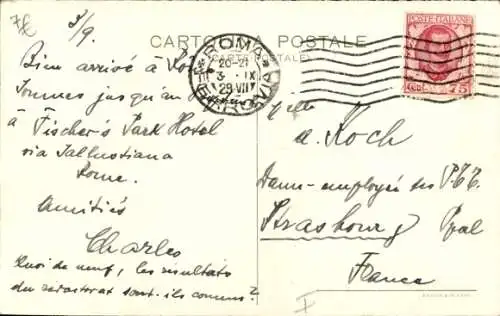 3/9.
Bien arrivé à
sommes jusqu'au
à Fischer's Park Hotel
via Sallustiana
Rome.
Amitiés
Charles
Quoi de neuf, les résultats
du sont-ils connus?
CARTOLINA POSTALE
ROMA
20-21
3 IX
29 VII
FERROVIA
POSTE ITALIANE
75
Melle
A. Koch
Dame-employée des P.T.T.
Strasbourg Ppal
France